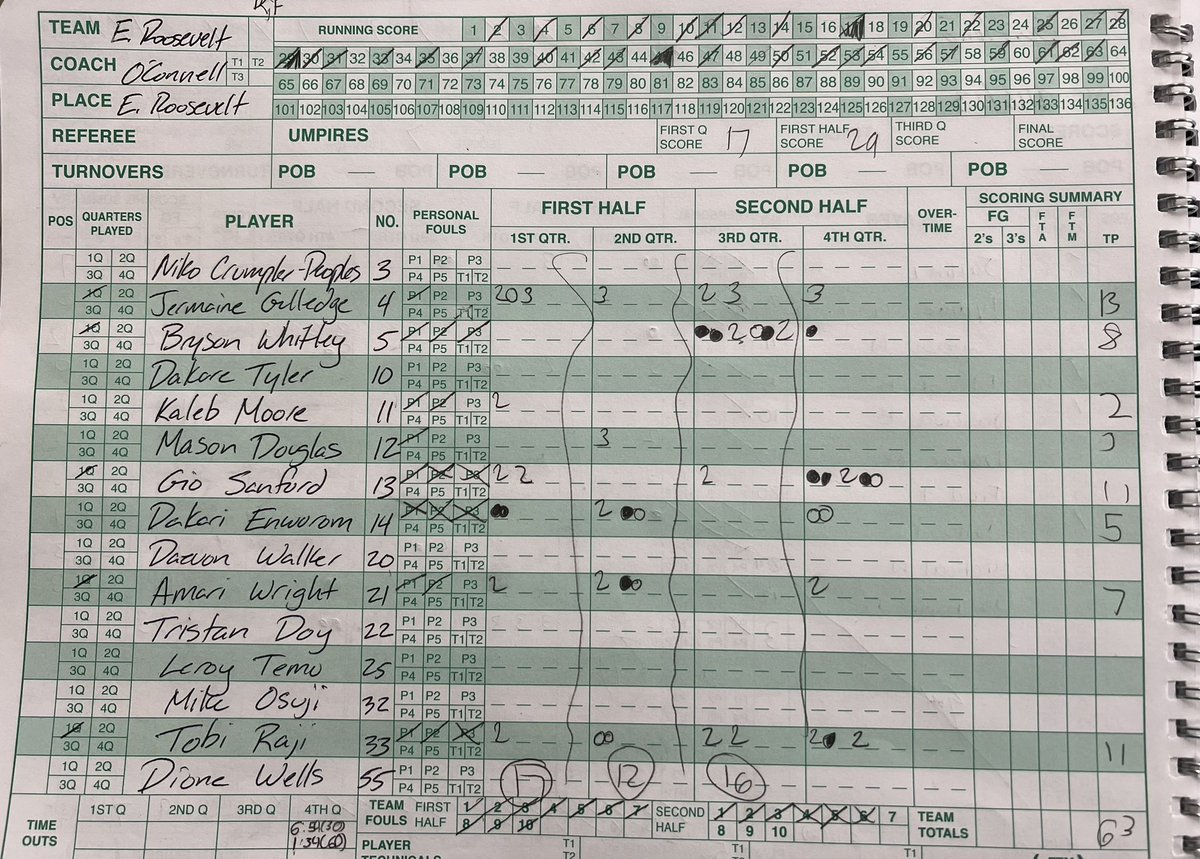 TEAM E. Roosevelt RUNNING SCORE 1 2 3 4 5 6 7 8 9 10 11 12 13 14 15 16 17 18 19 20 21 22 23 24 25 26 27 28
COACH O'Connell T1 T2 T3 29 30 31 32 33 34 35 36 37 38 39 40 41 42 43 44 45 46 47 48 49 50 51 52 53 54 55 56 57 58 59 60 61 62 63 64
65 66 67 68 69 70 71 72 73 74 75 76 77 78 79 80 81 82 83 84 85 86 87 88 89 90 91 92 93 94 95 96 97 98 99 100
PLACE E. Roosevelt 101 102 103 104 105 106 107 108 109 110 111 112 113 114 115 116 117 118 119 120 121 122 123 124 125 126 127 128 129 130 131 132 133 134 135 136
REFEREE UMPIRES FIRST Q SCORE 17 FIRST HALF SCORE 29 THIRD Q SCORE FINAL SCORE
TURNOVERS POB — POB — POB — POB — POB —
POS QUARTERS PLAYED PLAYER NO. PERSONAL FOULS FIRST HALF SECOND HALF OVER-TIME SCORING SUMMARY
1ST QTR. 2ND QTR. 3RD QTR. 4TH QTR. FG 2's 3's FTA FTM TP
1Q 2Q 3Q 4Q Niko Crumpler-Peoples 3 P1 P2 P3 P4 P5 T1 T2
1Q 2Q 3Q 4Q Jermaine Gulledge 4 P1 P2 P3 P4 P5 T1 T2 203 3 2 3 3 13
1Q 2Q 3Q 4Q Bryson Whitley 5 P1 P2 P3 P4 P5 T1 T2 2 2 8
1Q 2Q 3Q 4Q Dakare Tyler 10 P1 P2 P3 P4 P5 T1 T2
1Q 2Q 3Q 4Q Kaleb Moore 11 P1 P2 P3 P4 P5 T1 T2 2 2
1Q 2Q 3Q 4Q Mason Douglas 12 P1 P2 P3 P4 P5 T1 T2 3 3
1Q 2Q 3Q 4Q Gio Sanford 13 P1 P2 P3 P4 P5 T1 T2 2 2 2 2 11
1Q 2Q 3Q 4Q Dakari Enworom 14 P1 P2 P3 P4 P5 T1 T2 2 5
1Q 2Q 3Q 4Q Daevon Walker 20 P1 P2 P3 P4 P5 T1 T2
1Q 2Q 3Q 4Q Amari Wright 21 P1 P2 P3 P4 P5 T1 T2 2 2 2 7
1Q 2Q 3Q 4Q Tristan Doy 22 P1 P2 P3 P4 P5 T1 T2
1Q 2Q 3Q 4Q Leroy Temu 25 P1 P2 P3 P4 P5 T1 T2
1Q 2Q 3Q 4Q Mike Osuji 32 P1 P2 P3 P4 P5 T1 T2
1Q 2Q 3Q 4Q Tobi Raji 33 P1 P2 P3 P4 P5 T1 T2 2 2 2 2 2 11
1Q 2Q 3Q 4Q Dione Wells 55 P1 P2 P3 P4 P5 T1 T2 17 12 16
TIME OUTS 1ST Q 2ND Q 3RD Q 4TH Q TEAM FOULS FIRST HALF 1 2 3 4 5 6 7 8 9 10 SECOND HALF 1 2 3 4 5 6 7 8 9 10 TEAM TOTALS 63
6:59(30)
1:34(60)
PLAYER T1 T1 T1